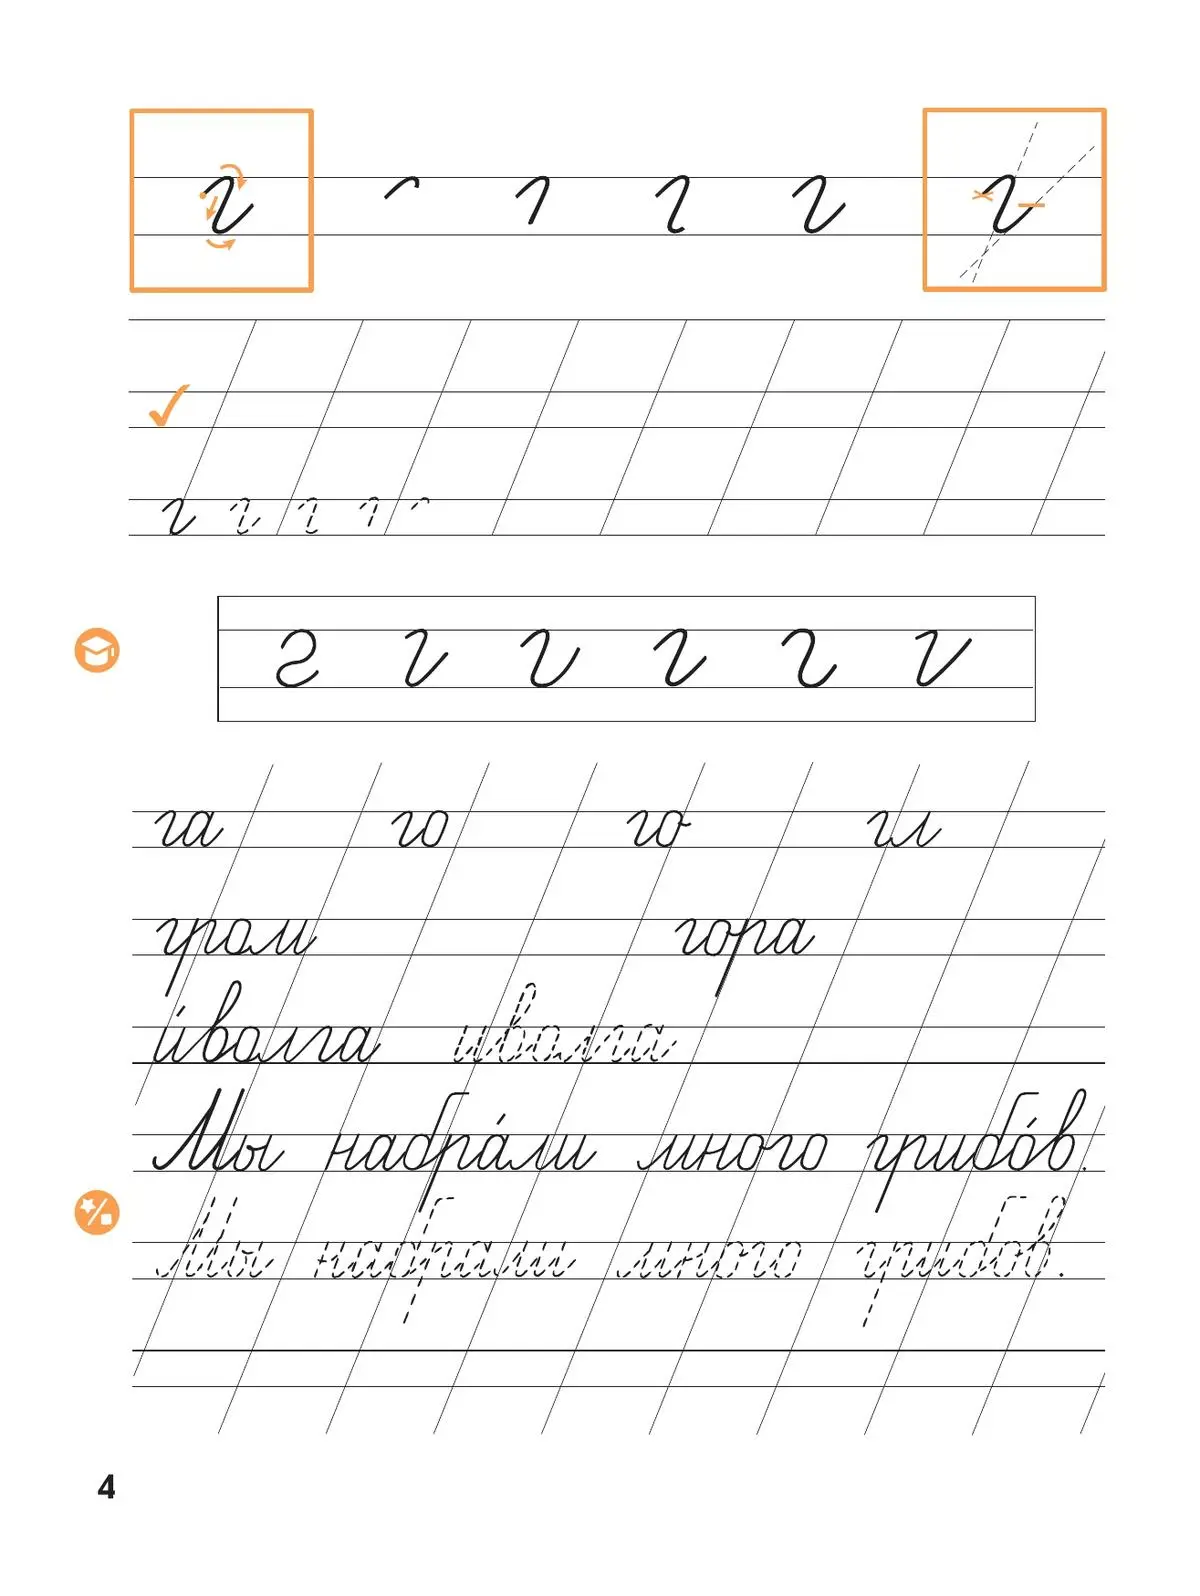 г г г г г г
г г г г г
г г г г г г
га го го гл
гром гора
и́волга иволга
Мы набра́ли много грибо́в.
Мы набрали много грибов.
4